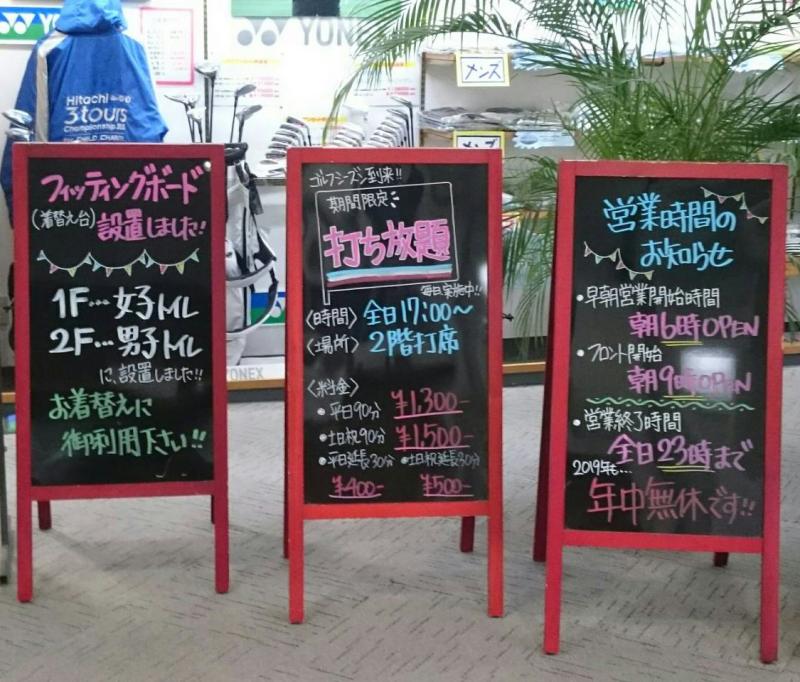 YONEX
メンズ
メンズ
Hitachi
3TOURS
Championship
フィッティングボード
(着替え台)設置しました!
1F…女子トイレ
2F…男子トイレ
に、設置しました!!
お着替えに
御利用下さい!!
YONEX
ゴルフシーズン到来!!
期間限定
打ち放題
毎日実施中!!
〈時間〉全日17:00〜
〈場所〉2階打席
〈料金〉
•平日90分 ¥1,300-
•土日祝90分 ¥1,500-
•平日延長30分 •土日祝延長30分
¥400- ¥500-
営業時間の
お知らせ
•早朝営業開始時間
朝6時OPEN
•フロント開始
朝9時OPEN
•営業終了時間
全日23時まで
2019年も…
年中無休です!!